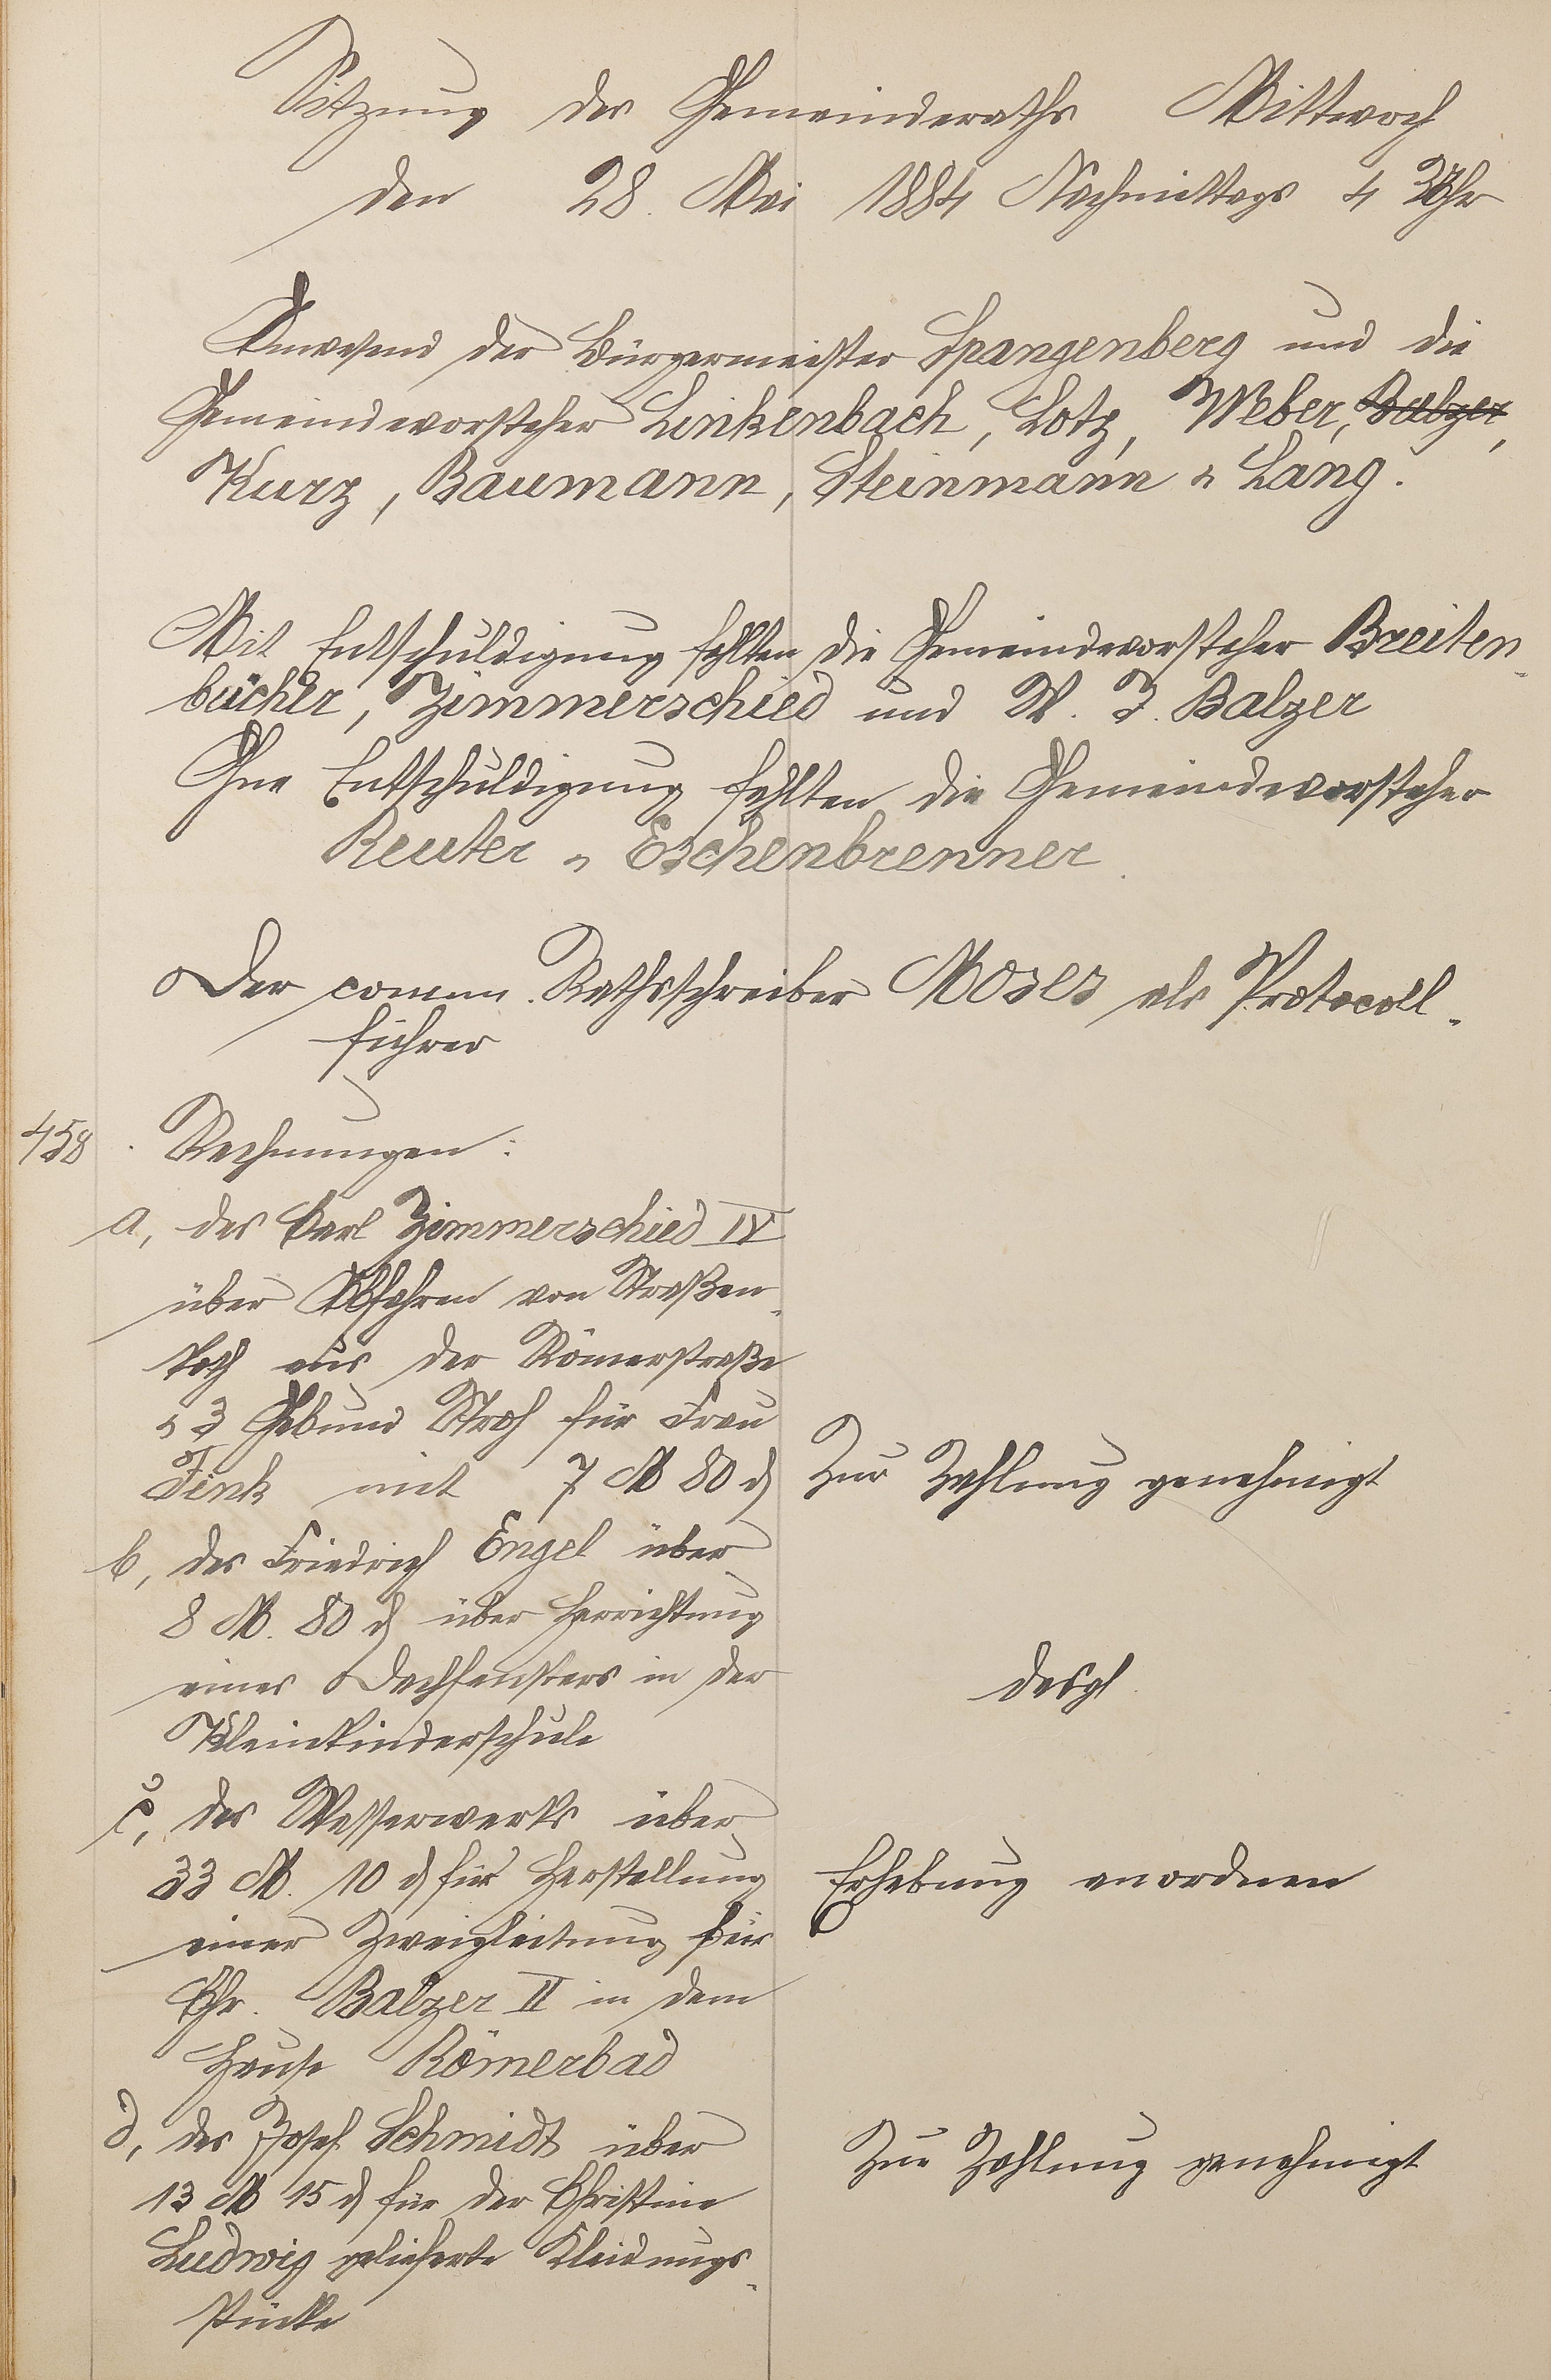 Sitzung des Gemeinderaths Mittwoch
den 28. Mai 1884 Nachmittags 4 Uhr
Anwesend der Bürgermeister Spangenberg und die
Gemeindevorsteher Linkenbach, Lotz, Weber, Balzer,
Kurz, Baumann, Steinmann u Lang.
Mit Entschuldigung fehlten die Gemeindevorsteher Breiten-
bücher, Zimmerschied und W. J. Balzer
Ohne Entschuldigung fehlten die Gemeindevorsteher
Reuter u Eschenbrenner.
Der comm. Rathsschreiber Moses als Protocoll-
führer
458. Rechnungen:
a, des Carl Zimmerschied IV
über Abfahren von Straßen-
koth aus der Römerstraße
u 3 Gebund Stroh für Frau
Fink mit 7 M 80 d
Zur Zahlung genehmigt
b, des Friedrich Engel über
8 M. 80 d über Herrichtung
eines Dachfensters in der
Kleinkinderschule
desgl.
c, des Wasserwerks über
33 M. 10 d für Herstellung
einer Zweigleitung für
Chr. Balzer II in dem
Hause Römerbad
Erhebung anordnen
d, des Josef Schmidt über
13 M 15 d für der Christine
Ludwig gelieferte Kleidungs-
stücke
Zur Zahlung genehmigt